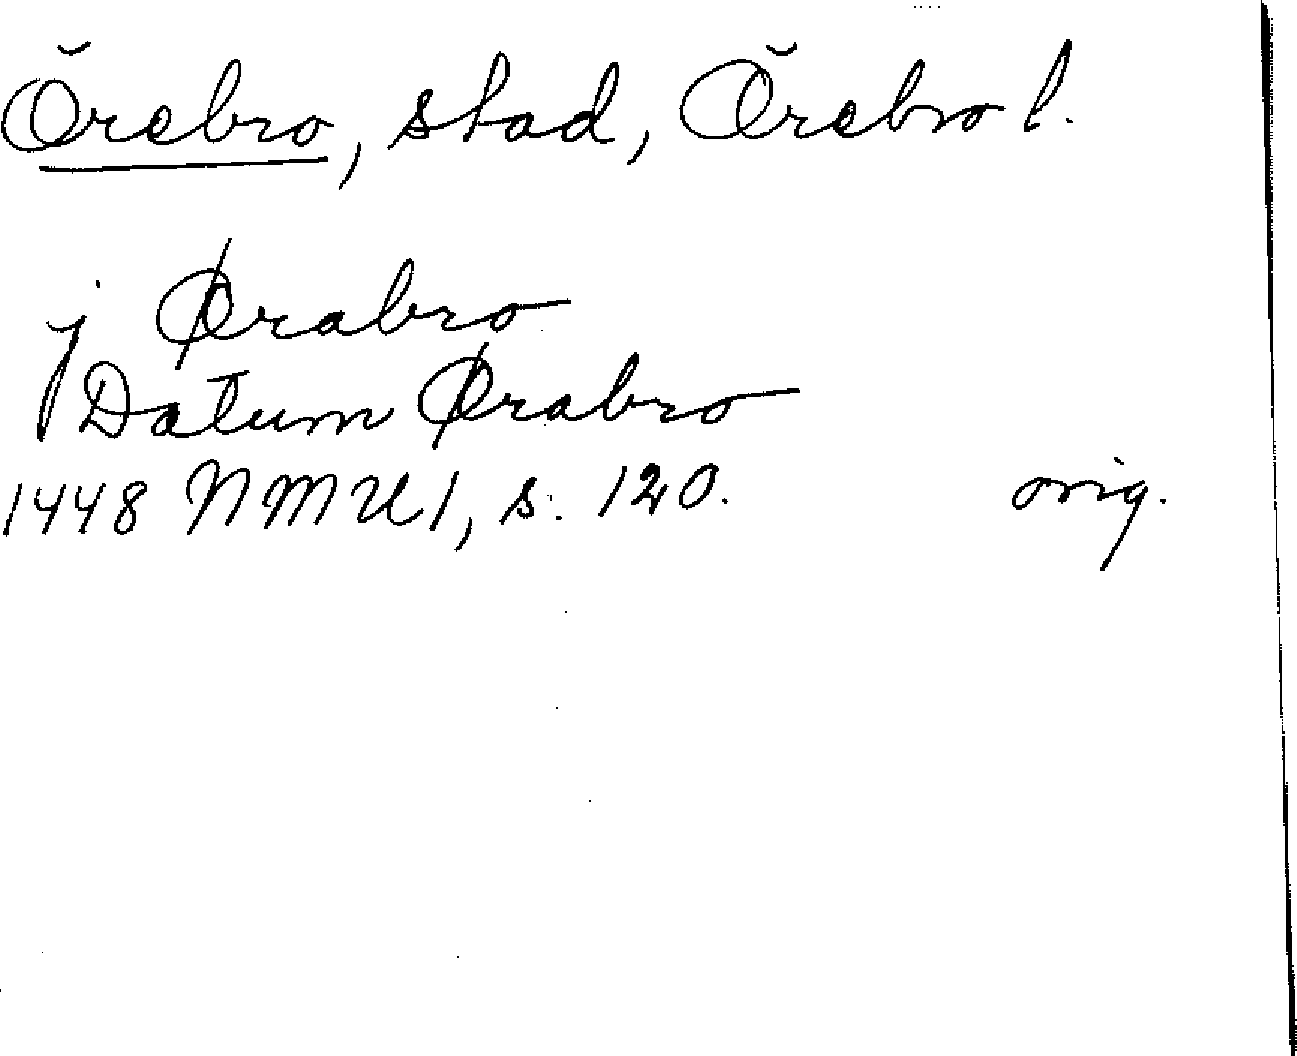 Örebro, stad, Örebro l.
j Ørabro
Datum Ørabro
1448 NMU1, s. 120. orig.